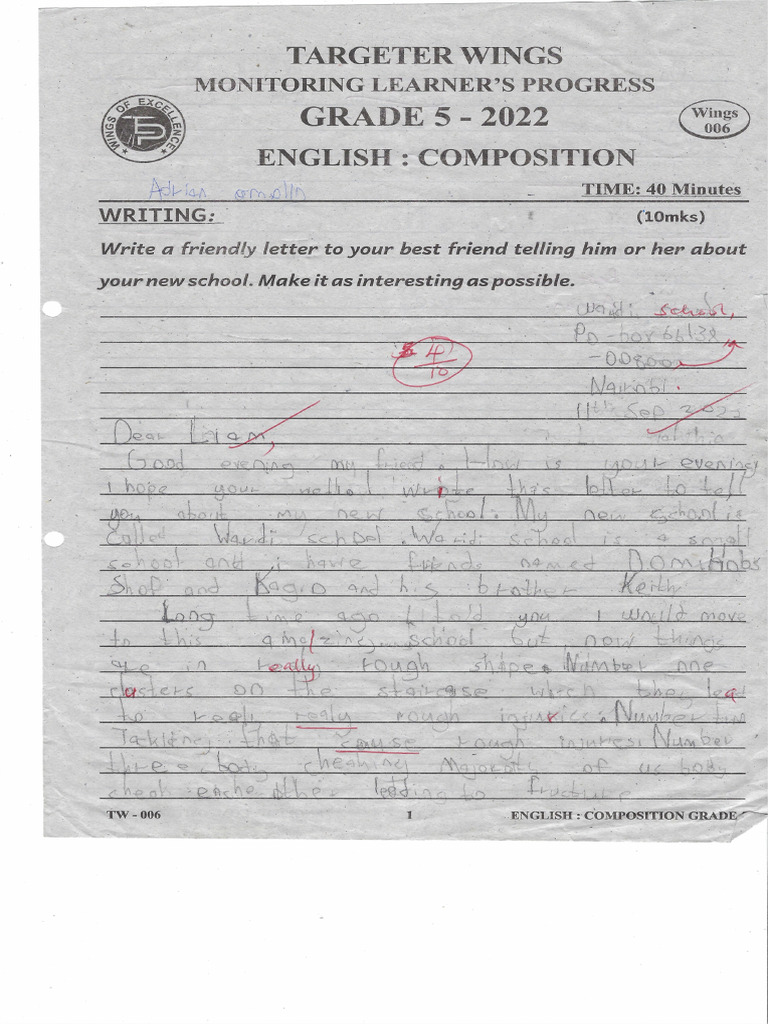 TARGETER WINGS
MONITORING LEARNER'S PROGRESS
GRADE 5 - 2022
WINGS OF EXCELLENCE
Wings
006
ENGLISH : COMPOSITION
Adrian
TIME: 40 Minutes
WRITING:
(10mks)
Write a friendly letter to your best friend telling him or her about
your new school. Make it as interesting as possible.
Waridi school,
PO-box 66138
-00800
Nairobi.
11th Sep 2022
4/10
Dear Liam,
Good evening my friend. How is your evening
I hope your write this letter to tell
you about my new school. My new school is
called Waridi school. Waridi school is a small
school and i have friends named
Shop and Kagio and his brother Keith
Long time ago I told you I would move
to this amazing school but now things
are in really rough shape. Number one
clasters on the staircase which they lead
to realy realy rough injuries. Number two
Takling that couse rough injures. Number
three body cheaking Majorati of us body
cheak eache other leading to fructure
TW - 006
1
ENGLISH : COMPOSITION GRADE